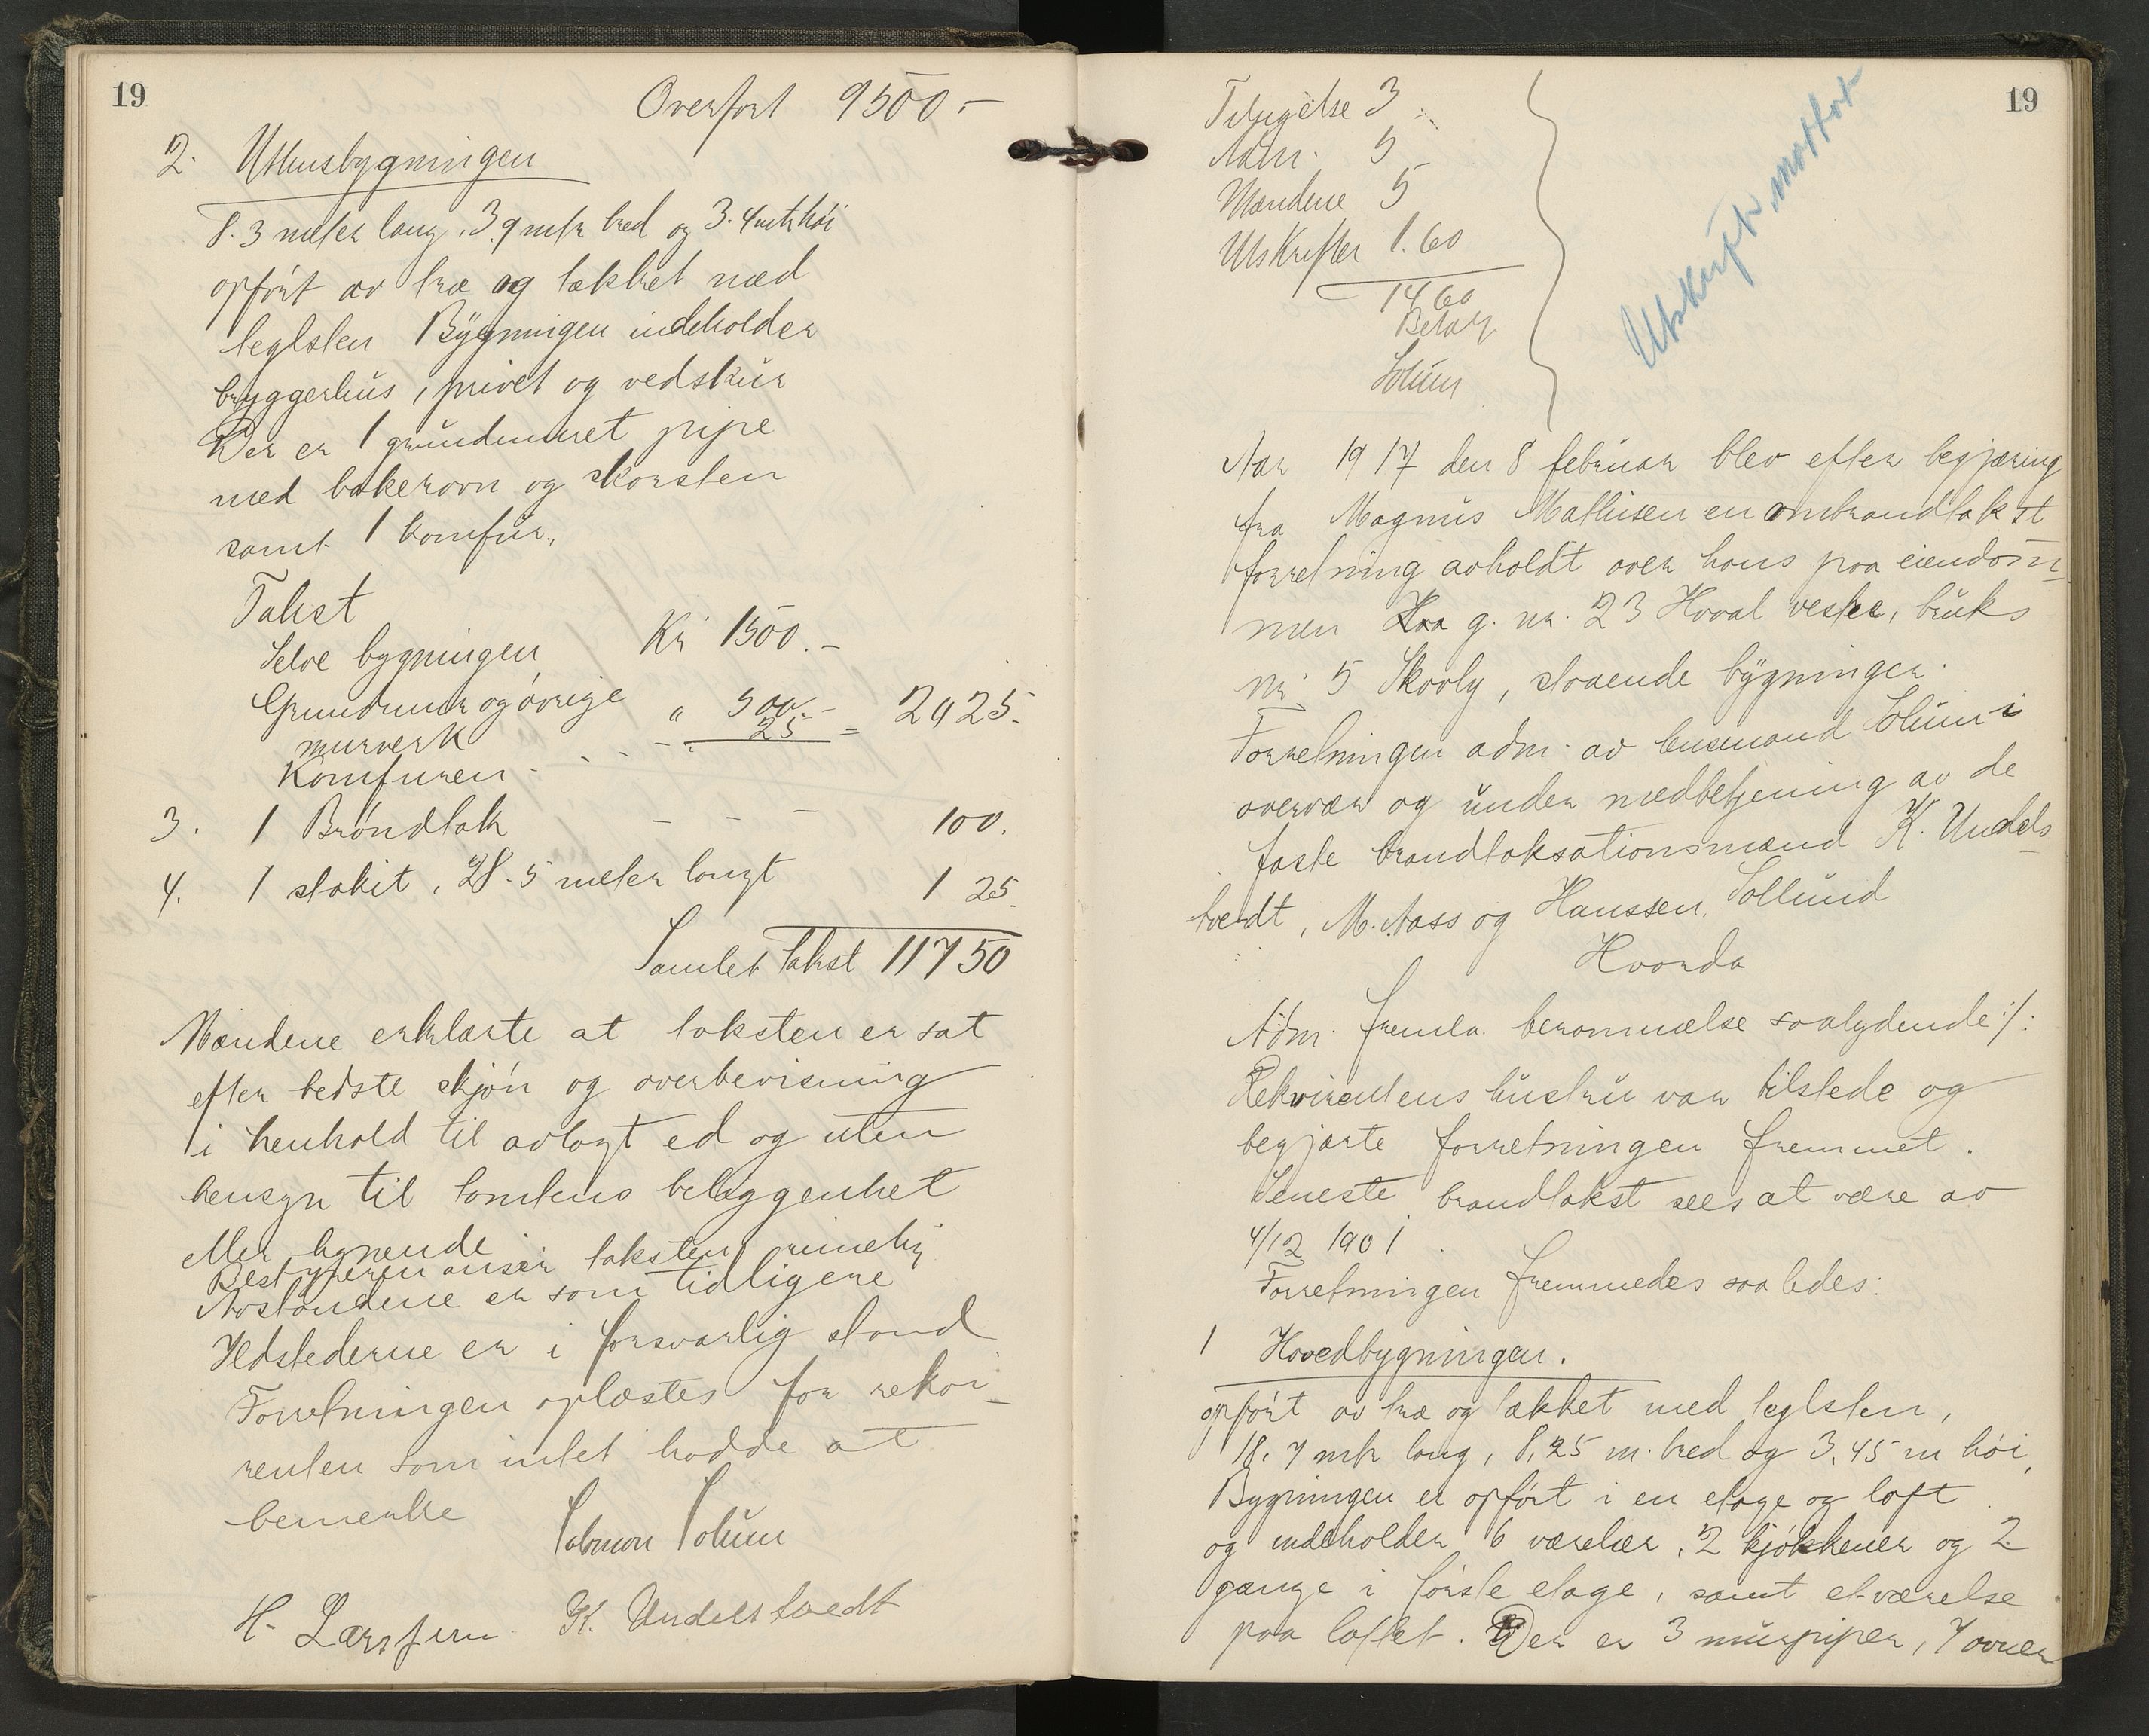 19
Overført 9500.-
2. Uthusbygningen
8.3 meter lang, 3.9 mtr bred og 3.4 mtr høi
opført av træ og tækket med
teglsten Bygningen indeholder
bryggerhus, privet og vedskur
Der er 1 grundmuret pipe
med bakerovn og skorsten
samt 1 komfur.
Takst
Selve bygningen Kr 1500.-
Grundmur og øvrige
murverk " 500.-
Komfuren - - - 25 = 2025.
3. 1 Brøndlok - - - 100.
4. 1 stakit, 28.5 meter langt 125.
Samlet takst 11750
Mændene erklærte at taksten er sat
efter bedste skjøn og overbevisning
i henhold til avlagt ed og uten
hensyn til tomtens beliggenhet
eller lignende
Bestyreren anser taksten rimelig
Avstandene er som tidligere
Ildstederne er i forsvarlig stand
Forretningen oplæstes for rekvi-
renten som intet hadde at
bemerke
Salomon Solum
H. Larssen K. Undelstvedt
19
Tilsigelse 3
Adm. 5
Mændene 5
Utskrifter 1.60
14.60
Betalt
Solum
Utskrift mottat
Aar 1917 den 8 februar blev efter begjæring
fra Magnus Mathisen en ombrandtakst
forretning avholdt over hans paa eiendom-
men g. nr. 23 Hvaal vestre, bruks
nr. 5 Skovly, staaende bygninger.
Forretningen adm. av lensmand Solum i
overvær og under medbetjening av de
faste brandtaksationsmænd K. Undels-
tvedt, M. Aass og Hanssen, Sollund
Hvorda
Adm. fremla berammelse saalydende :/:
Rekvirentens hustru var tilstede og
begjærte forretningen fremmet.
Seneste brandtakst sees at være av
4/12 1901.
Forretningen fremmedes saaledes:
1 Hovedbygningen.
opført av træ og tækket med teglsten,
18.7 mtr lang, 8,25 m. bred og 3,45 m høi,
Bygningen er opført i en etage og loft
og indeholder 6 værelser, 2 kjøkkener og 2
gange i første etage, samt et værelse
paa loftet. Der er 3 murpiper, 7 ovner